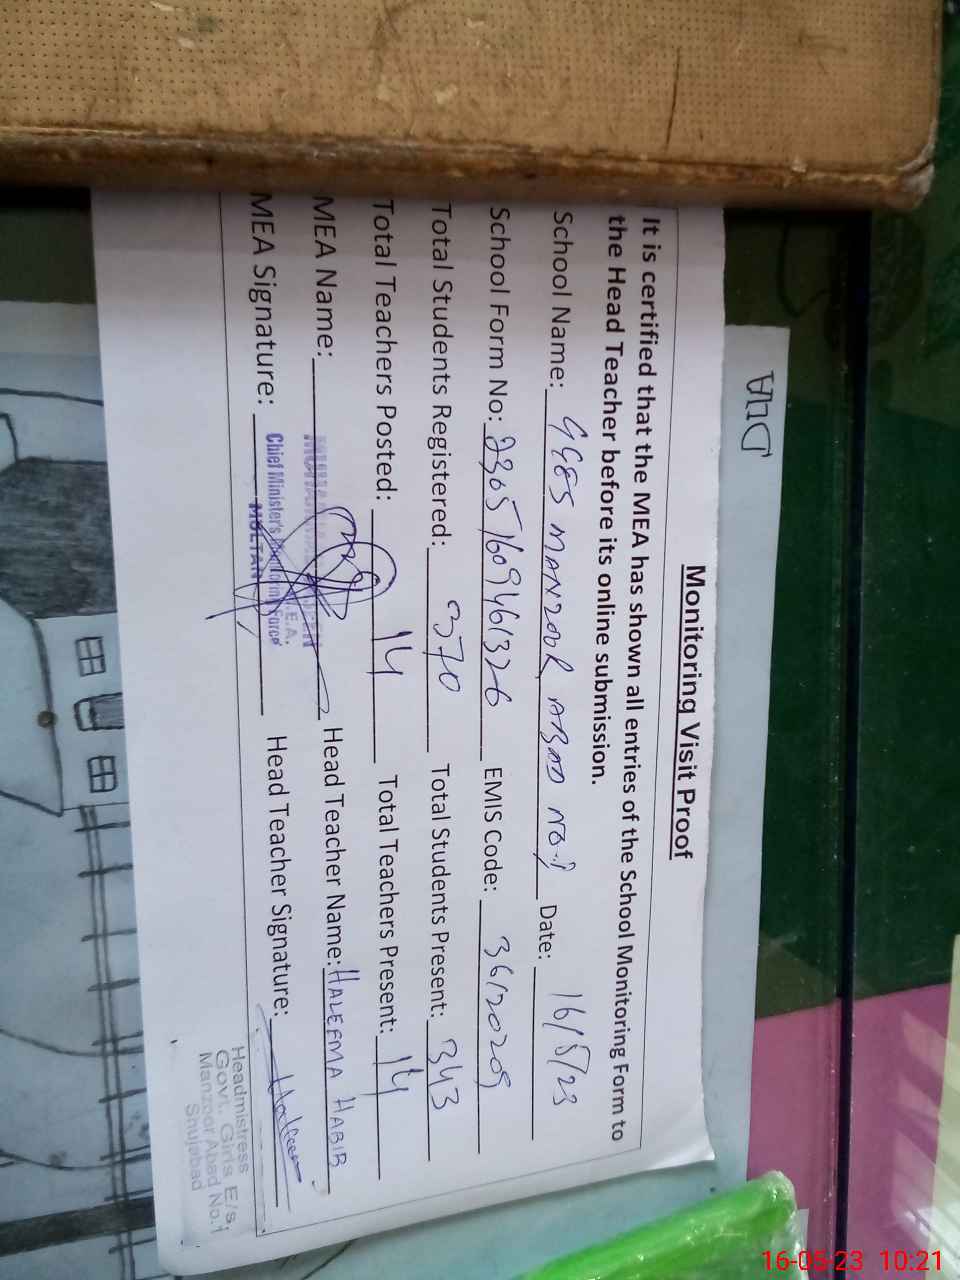 DHA
Monitoring Visit Proof
It is certified that the MEA has shown all entries of the School Monitoring Form to
the Head Teacher before its online submission.
School Name: GGES MANZOOR ABAD NO.1 Date: 16/5/23
School Form No: 23051609461326 EMIS Code: 36120209
Total Students Registered: 370 Total Students Present: 343
Total Teachers Posted: 14 Total Teachers Present: 14
MEA Name: Head Teacher Name: HALEEMA HABIB
MEA Signature: Head Teacher Signature:
M.E.A.
Chief Minister's Monitoring Force
MULTAN
Headmistress
Govt. Girls E/S,
Manzoor Abad No.1
Shujabad
16-05-23 10:21